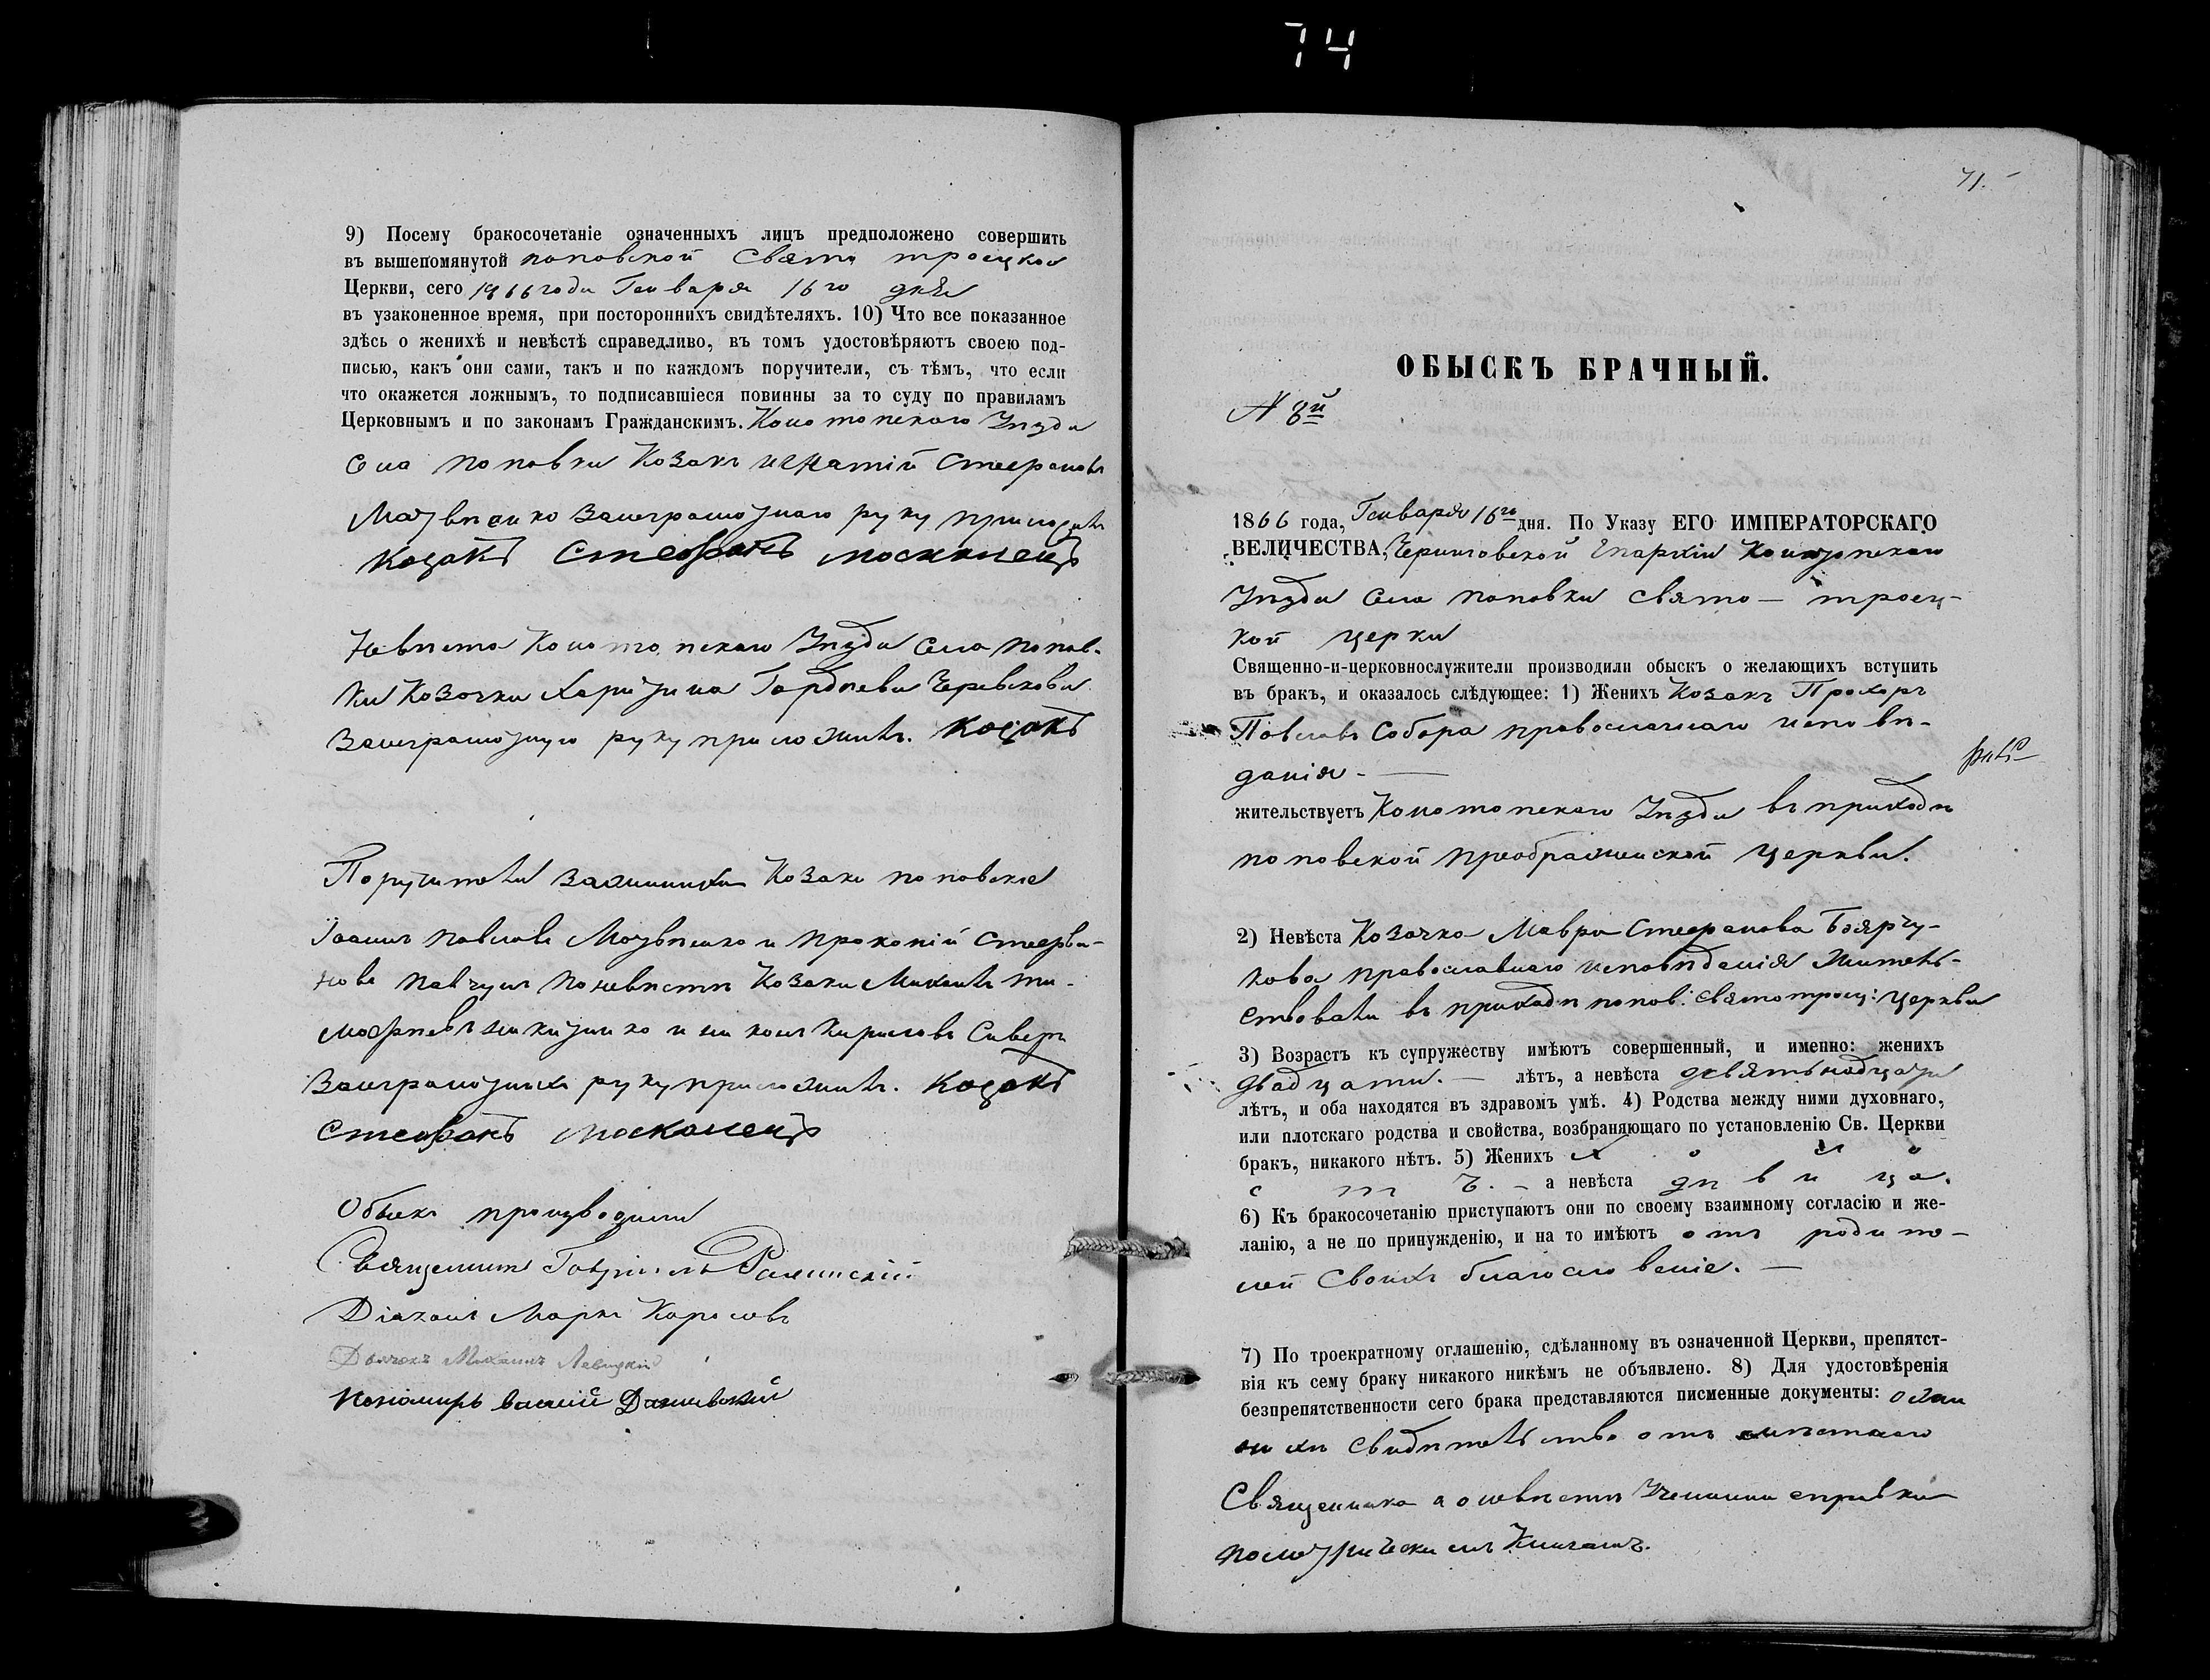 74
9) Посему бракосочетаніе означенныхъ лицъ предположено совершить
въ вышепомянутой поповской Свято троецкой
Церкви, сего 1866 года Генваря 16го дня
въ узаконенное время, при постороннихъ свидѣтеляхъ. 10) Что все показанное
здѣсь о женихѣ и невѣстѣ справедливо, въ томъ удостовѣряютъ своею под-
писью, какъ они сами, такъ и по каждомъ поручители, съ тѣмъ, что если
что окажется ложнымъ, то подписавшіеся повинны за то суду по правиламъ
Церковнымъ и по законамъ Гражданскимъ. Конотопскаго Уѣзда
Села поповки Козакъ игнатій Стефановъ
Матвѣенко Неграмотнаго руку приложилъ
Козакъ Стефанъ москалецъ
Невѣста Конотопскаго Уѣзда Села попов-
ки Козачки Гордѣева
руку приложилъ. Козакъ
Поручители Козаки поповские
Іоаннъ павловъ Матвѣенко и прокопій Стефа-
новъ павчунъ по невѣстѣ Козаки Михаилъ ти-
мофѣевъ и Кириловъ
руку приложилъ. Козакъ
Стефанъ москалецъ
Обыскъ производили
Священникъ Гавріилъ
Діаконъ Марко
Дьячокъ Михаилъ Левицкій
Пономарь василій
71.
ОБЫСКЪ БРАЧНЫЙ.
N 8й
1866 года, Генваря 16го дня. По Указу ЕГО ИМПЕРАТОРСКАГО
ВЕЛИЧЕСТВА, Черниговской Епархіи Конотопскаго
Уѣзда Села поповки свято — троец-
кой церкви
Священно-и-церковнослужители производили обыскъ о желающихъ вступить
въ бракъ, и оказалось слѣдующее: 1) Женихъ Козакъ Прохоръ
Павловъ Собора православнаго исповѣ-
данія. —
жительствуетъ Конотопскаго Уѣзда въ приходѣ
поповской преображенской церкви.
2) Невѣста Козачка Мавра Стефанова Боярчу-
кова православнаго исповѣданія житель-
ствовала въ приходѣ попов: святотроец: церкви
3) Возрастъ къ супружеству имѣютъ совершенный, и именно: женихъ
двадцати. — лѣтъ, а невѣста девятьнадцати
лѣтъ, и оба находятся въ здравомъ умѣ. 4) Родства между ними духовнаго,
или плотскаго родства и свойства, возбраняющаго по установленію Св. Церкви
бракъ, никакого нѣтъ. 5) Женихъ х о л о
с т ъ. — а невѣста дѣвица.
6) Къ бракосочетанію приступаютъ они по своему взаимному согласію и же-
ланію, а не по принужденію, и на то имѣютъ отъ родите-
лей своихъ благословеніе. —
7) По троекратному оглашенію, сдѣланному въ означенной Церкви, препятст-
вія къ сему браку никакого никѣмъ не объявлено. 8) Для удостовѣренія
безпрепятственности сего брака представляются писменные документы: о жени
хѣ свидѣтельство отъ мѣстнаго
Священника а о невѣстѣ Учинены справки
по метрическимъ Книгамъ.